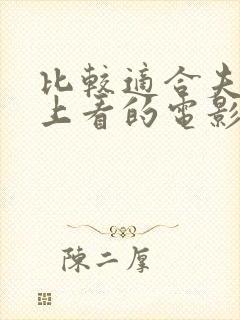 比較適合夫
上看的電影
陳二厚